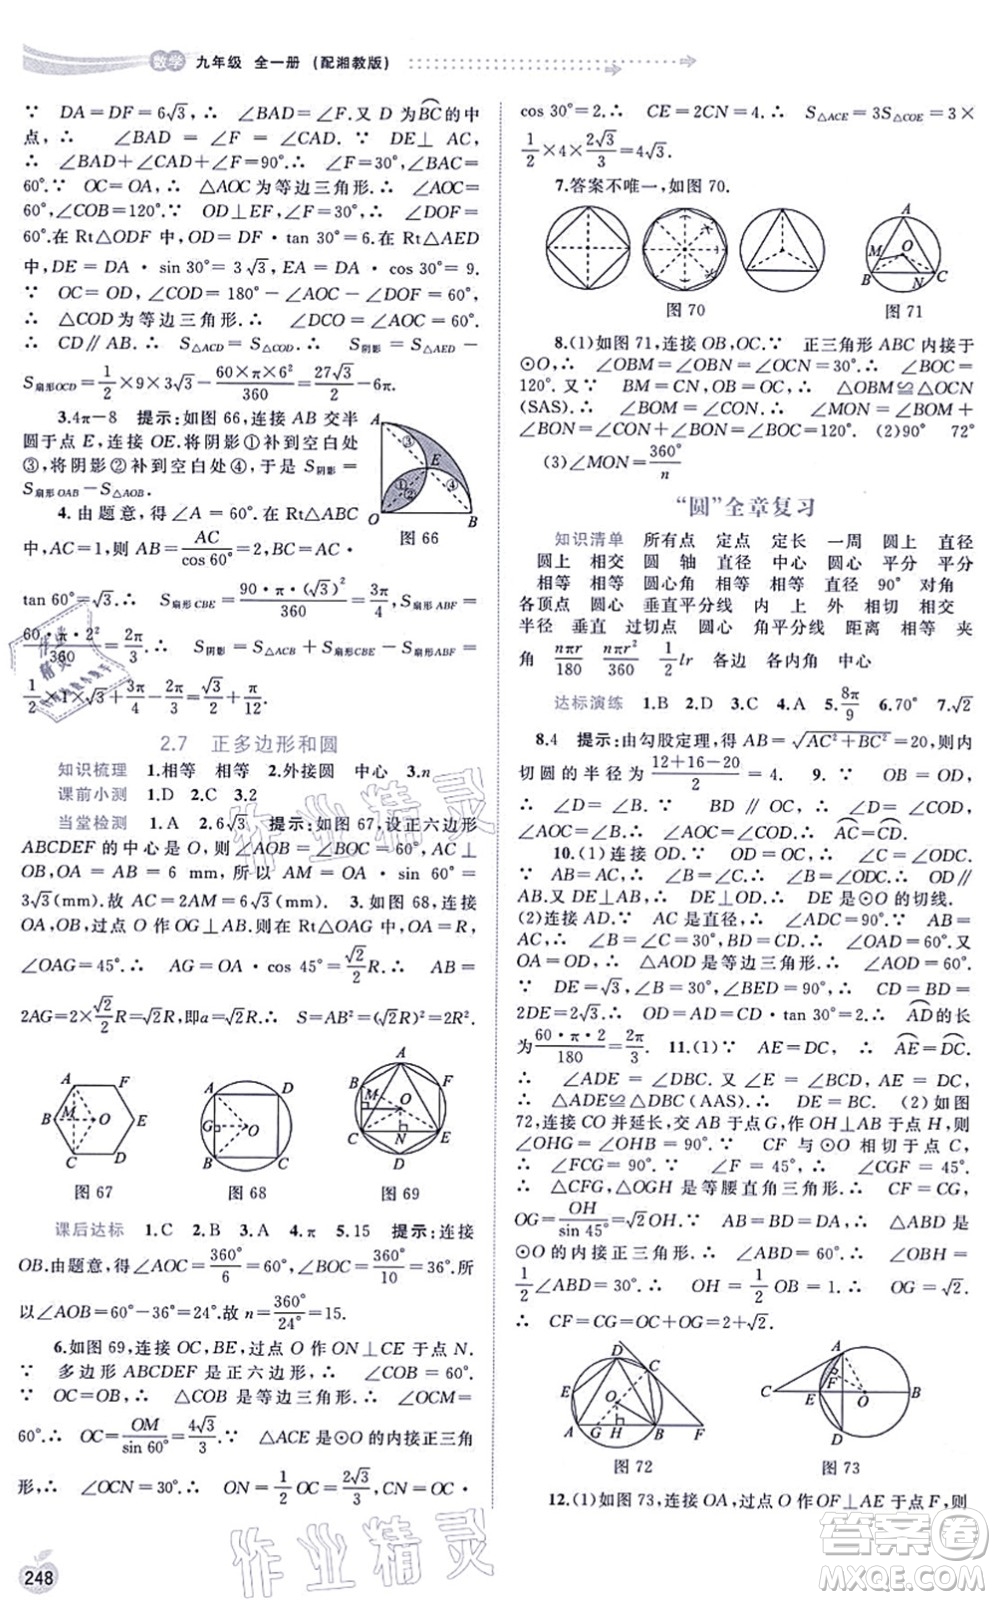 数学 九年级 全一册 (配湘教版)
∵ DA=DF=6√3,∴ ∠BAD=∠F.又 D 为BC的中
点,∴ ∠BAD=∠F=∠CAD.∵ DE⊥AC,∴
∠BAD+∠CAD+∠F=90°.∴ ∠F=30°,∠BAC=
60°.∵ OC=OA,∴ △AOC 为等边三角形.∴ ∠AOC=
60°,∠COB=120°.∵ OD⊥EF,∠F=30°,∴ ∠DOF=
60°.在 Rt△ODF 中,OD=DF·tan 30°=6.在 Rt△AED
中,DE=DA·sin 30°=3√3,EA=DA·cos 30°=9.
∵ OC=OD,∠COD=180°-∠AOC-∠DOF=60°,
∴ △COD为等边三角形.∴ ∠DCO=∠AOC=60°.
∴ CD∥AB.∴ S△ACD=S△COD.∴ S阴影=S△AED-
S扇形OCD=1/2×9×3√3-60×π×6²/360=27√3/2-6π.
3.4π-8 提示:如图 66,连接 AB 交半
圆于点 E,连接 OE.将阴影①补到空白处
③,将阴影②补到空白处④,于是 S阴影=
S扇形OAB-S△AOB.
4.由题意,得∠A=60°.在 Rt△ABC
中,AC=1,则 AB=AC/cos 60°=2,BC=AC·
图 66
tan 60°=√3.∴ S扇形CBE=90·π·(√3)²/360=3π/4,S扇形ABF=
60·π·2²/360=2π/3.∴ S阴影=S△ACB+S扇形CBE-S扇形ABF=
1/2×1×√3+3π/4-2π/3=√3/2+π/12.
2.7 正多边形和圆
知识梳理 1.相等 相等 2.外接圆 中心 3.n
课前小测 1.D 2.C 3.2
当堂检测 1.A 2.6√3 提示:如图 67,设正六边形
ABCDEF 的中心是 O,则∠AOB=∠BOC=60°,AC⊥
OB,OA=AB=6 mm,所以 AM=OA·sin 60°=
3√3(mm).故 AC=2AM=6√3(mm). 3.如图 68,连接
OA,OB,过点 O 作 OG⊥AB.则在 Rt△OAG 中,OA=R,
∠OAG=45°.∴ AG=OA·cos 45°=√2/2R.∴ AB=
2AG=2×√2/2R=√2R,即a=√2R.∴ S=AB²=(√2R)²=2R².
图 67 图 68 图 69
课后达标 1.C 2.B 3.A 4.π 5.15 提示:连接
OB.由题意,得∠AOC=360°/6=60°,∠BOC=360°/10=36°.所
以∠AOB=60°-36°=24°.故 n=360°/24°=15.
6.如图 69,连接 OC,BE,过点 O 作 ON⊥CE 于点 N.
∵ 多边形 ABCDEF 是正六边形,∴ ∠COB=60°.
∵ OC=OB,∴ △COB 是等边三角形.∴ ∠OCM=
60°.∴ OC=OM/sin 60°=4√3/3.∵ △ACE是⊙O 的内接正三角
形,∴ ∠OCN=30°.∴ ON=1/2OC=2√3/3,CN=OC·
248
cos 30°=2.∴ CE=2CN=4.∴ S△ACE=3S△COE=3×
1/2×4×2√3/3=4√3.
7.答案不唯一,如图 70.
图 70 图 71
8.(1)如图 71,连接 OB,OC.∵ 正三角形 ABC 内接于
⊙O,∴ ∠OBM=∠OBN=∠OCN=30°.∴ ∠BOC=
120°.又∵ BM=CN,OB=OC,∴ △OBM≌△OCN
(SAS).∴ ∠BOM=∠CON.∴ ∠MON=∠BOM+
∠BON=∠CON+∠BON=∠BOC=120°. (2)90° 72°
(3)∠MON=360°/n
“圆”全章复习
知识清单 所有点 定点 定长 一周 圆上 直径
圆上 相交 圆 轴 直径 中心 圆心 平分 平分
相等 相等 圆心角 相等 相等 直径 90° 对角
各顶点 圆心 垂直平分线 内 上 外 相切 相交
半径 垂直 过切点 圆心 角平分线 距离 相等 夹
角 nπr/180 nπr²/360 1/2lr 各边 各内角 中心
达标演练 1.B 2.D 3.C 4.A 5.8π/9 6.70° 7.√2
8.4 提示:由勾股定理,得 AB=√(AC²+BC²)=20,则内
切圆的半径为(12+16-20)/2=4. 9.∵ OB=OD,∴
∠D=∠B.∵ AB∥OD,∴ ∠D=∠COD,
∠AOC=∠B.∴ ∠AOC=∠COD.∴ AC=CD.
10.(1)连接 OD.∵ OD=OC,∴ ∠C=∠ODC.
∵ AB=AC,∴ ∠B=∠C.∴ ∠B=∠ODC.∴ OD∥
AB.∵ DE⊥AB,∴ DE⊥OD.∴ DE是⊙O 的切线.
(2)连接 AD.∵ AC 是直径,∴ ∠ADC=90°.∵ AB=
AC,∴ ∠B=∠C=30°,BD=CD.∴ ∠OAD=60°.又
OA=OD,∴ △AOD 是等边三角形.∴ ∠AOD=60°.
∵ DE=√3,∠B=30°,∠BED=90°,∴ CD=BD=
2DE=2√3.∴ OD=AD=CD·tan 30°=2.∴ AD的长
为60·π·2/180=2π/3. 11.(1)∵ AE=DC,∴ AE=DC.
∴ ∠ADE=∠DBC.又∵ ∠E=∠DCB,AD=DB,
∴ △ADE≌△DBC(AAS).∴ DE=BC. (2)如图
72,连接 CO 并延长,交 AB 于点 G,作 OH⊥AB于点 H,则
∠OHG=∠OHB=90°.∵ CF 与⊙O 相切于点 C,∴
∠FCG=90°.∵ ∠F=45°,∴ ∠CGF=45°.∴
△CFG,△OGH 是等腰直角三角形.∴ CF=CG,
OG=OH/sin 45°=√2OH.∵ AB=BD=DA,∴ △ABD 是
⊙O 的内接正三角形.∴ ∠ABD=60°.∴ ∠OBH=
1/2∠ABD=30°.∴ OH=1/2OB=1.∴ OG=√2.
∴ CF=CG=OC+OG=2+√2.
图 72 图 73
12.(1)如图 73,连接 OA,过点 O 作OF⊥AE于点 F,则
作业精灵
作业精灵
答案圈
MXQE.COM